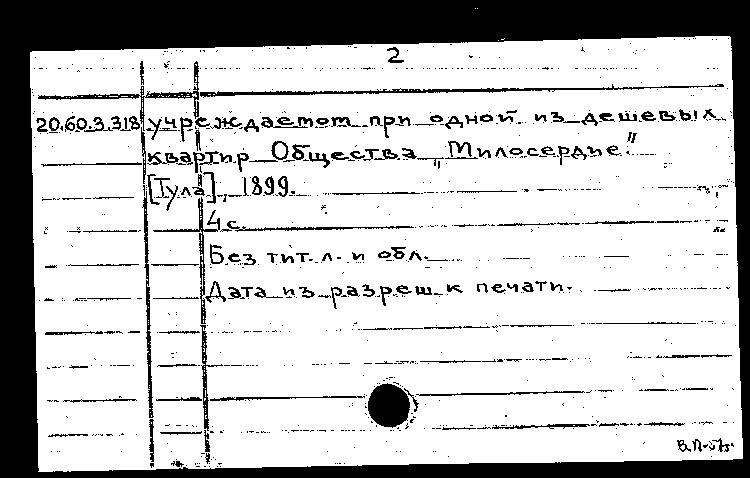 2
20.60.3.318 учреждаемом при одной из дешевых
квартир Общества „Милосердие."
[Тула], 1899.
4 с.
Без тит. л. и обл.
Дата из разреш. к печати.